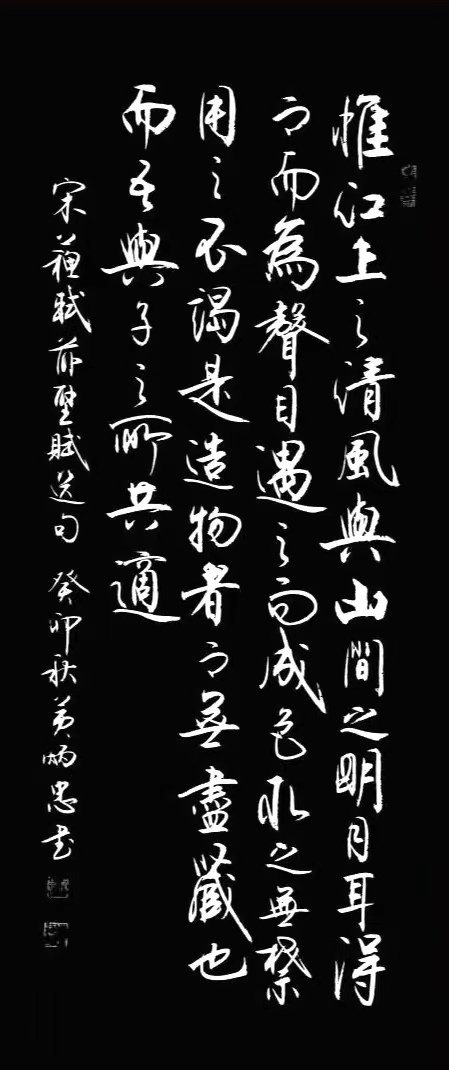 惟江上之清風與山間之明月耳得
之而為聲目遇之而成色取之無禁
用之不竭是造物者之無盡藏也
而吾與子之所共適
宋蘇軾前壁賦选句 癸卯秋黄炳忠书